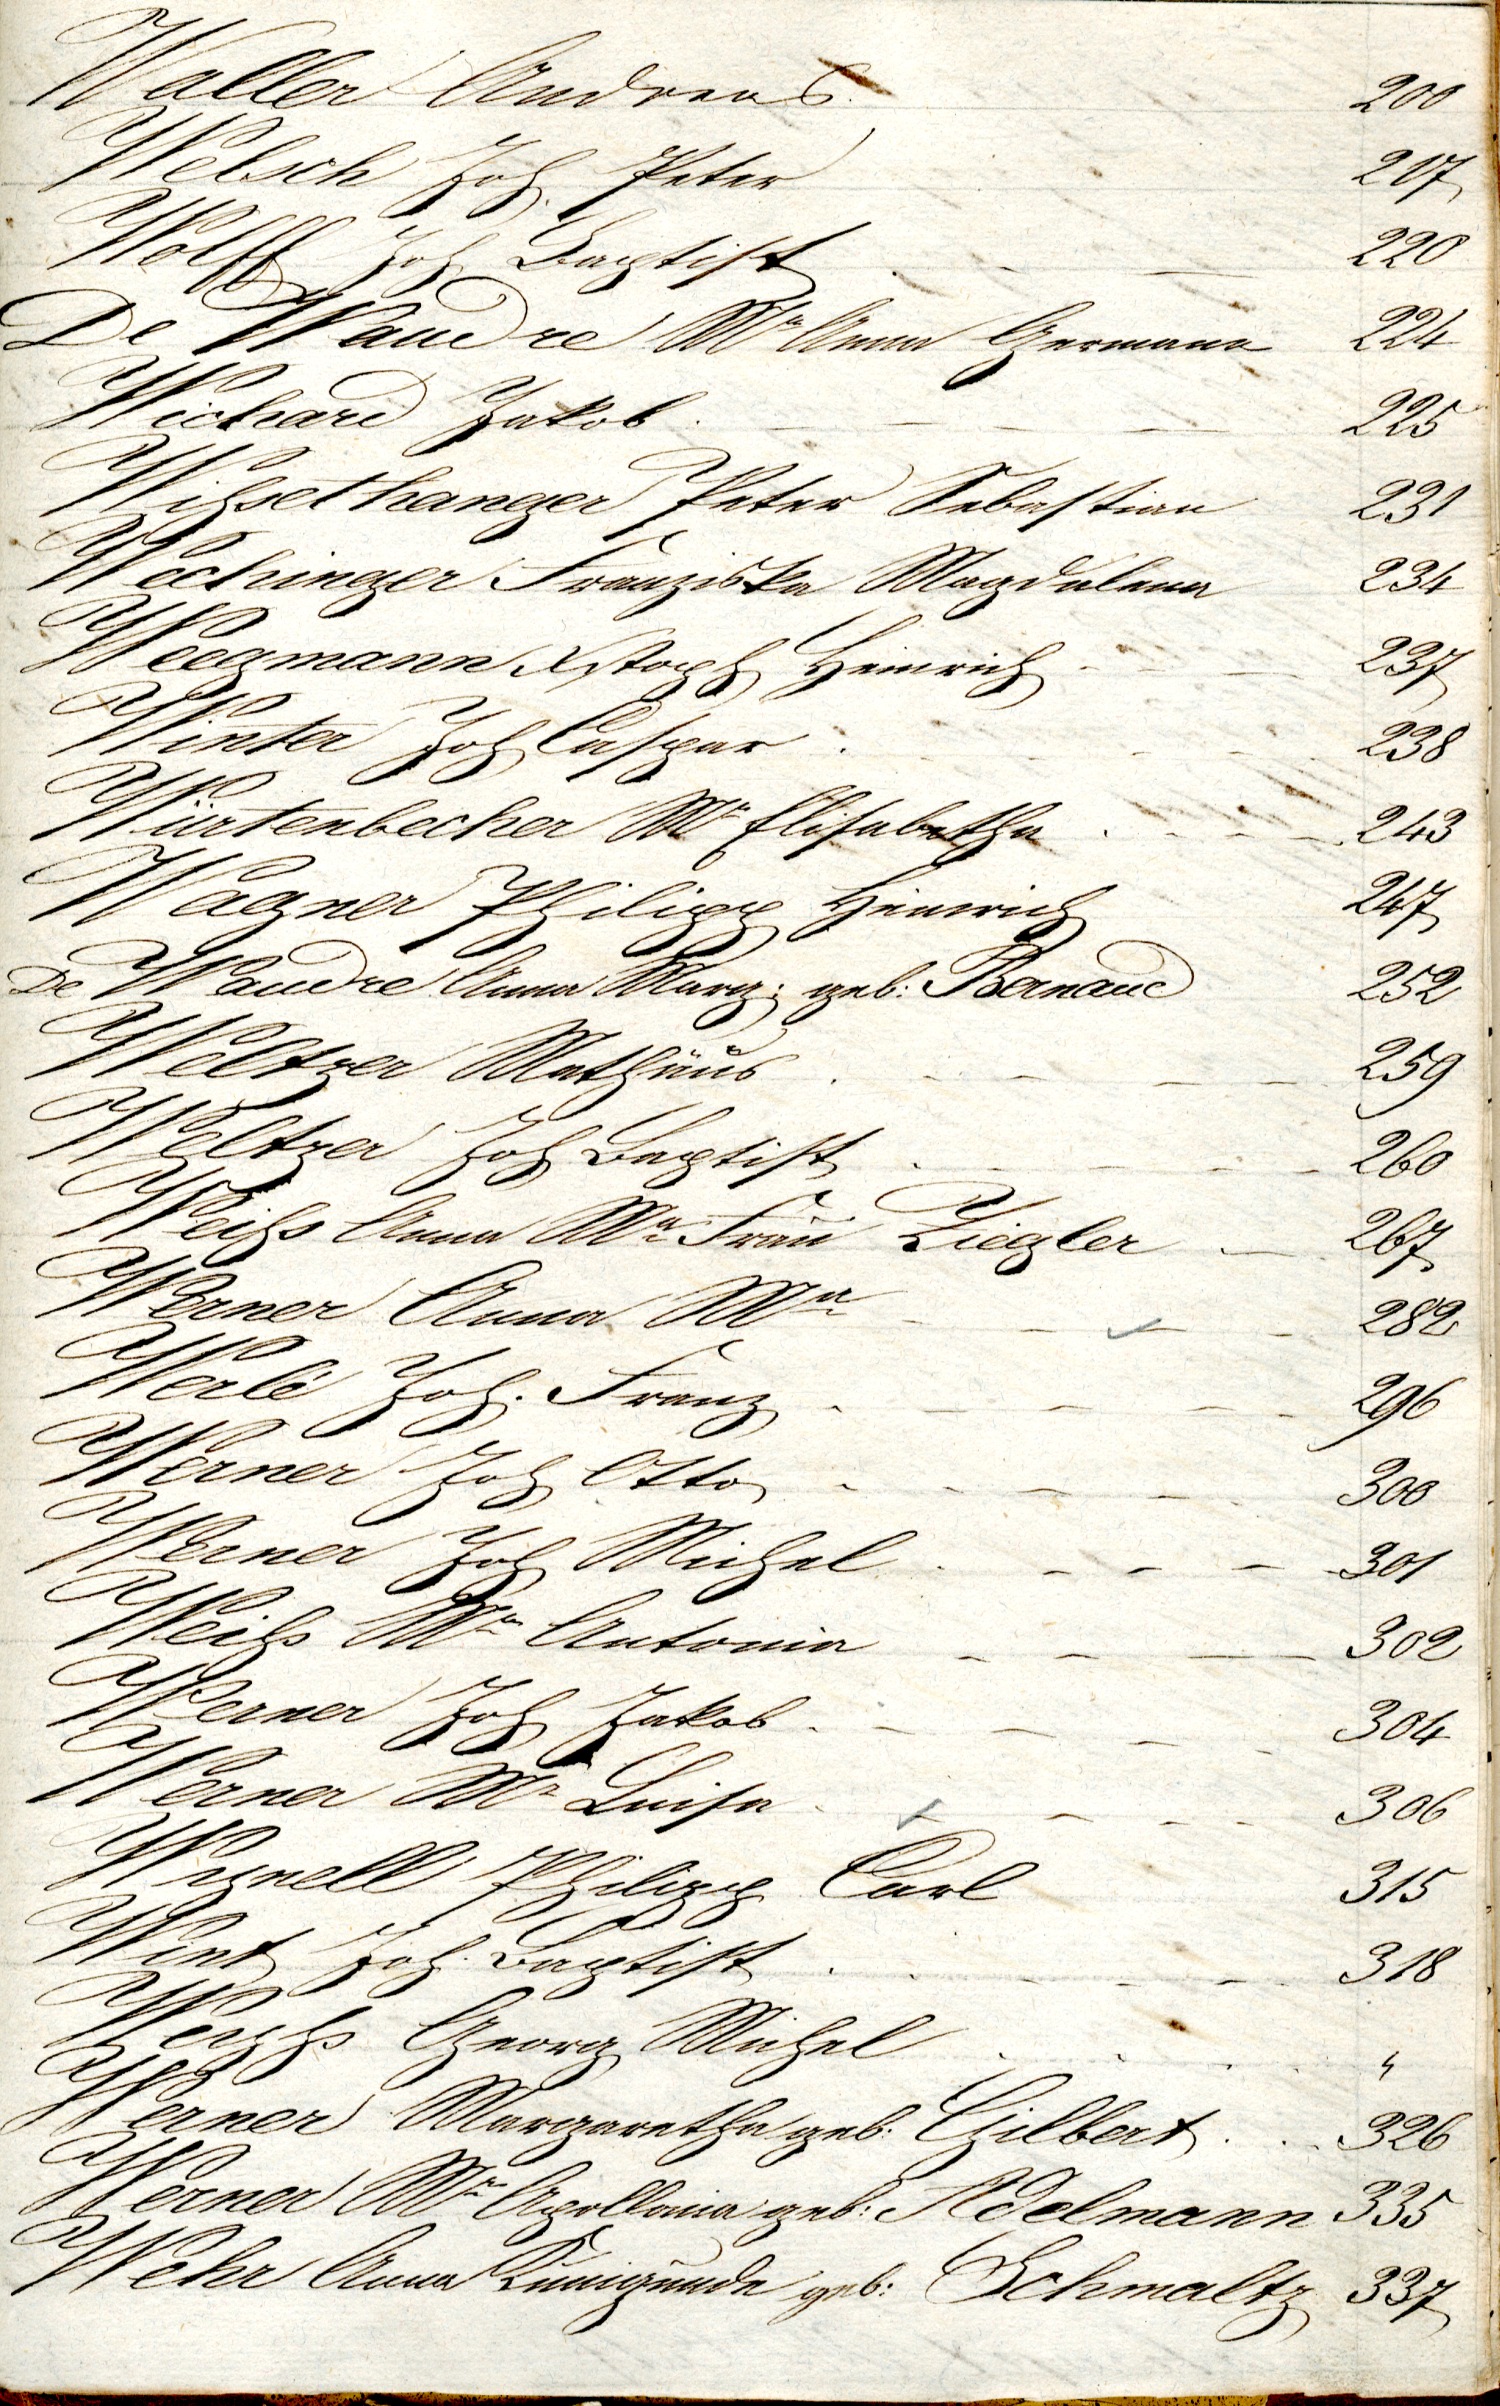 Waller Andreas. 200
Welsch Joh. Peter 217
Wolff Joh Baptist 220
De Waudre Mª Anna Germana 224
Wichard Jakob. 225
Peter Sebastian 231
Wechinger Franziska Magdalena 234
Weegmann Xstoph Heinrich 237
Winter Joh Caspar 238
Würtenbecher Mª Elisabetha 243
Wagner Philipp Heinrich 247
De Waudre Anna Marg: geb: Bernaud 252
Weltzer Mathäus 259
Weltzer Joh Baptist 260
Weihs Anna Mª Frau Ziegler 267
Werner Anna Mª 282
Werlé Joh. Franz 296
Werner Joh Otto 300
Werner Joh Michel 301
Weihs Mª Antonia 302
Werner Joh Jakob 304
Werner Mª Luisa 306
Philipp Carl 315
Wint Joh. Baptist 318
Georg Michel "
Werner Margaretha geb: Gilbert 326
Werner Mª Apollonia geb: Adelmann 335
Wehr Anna Kunigunde geb: Schmaltz 337